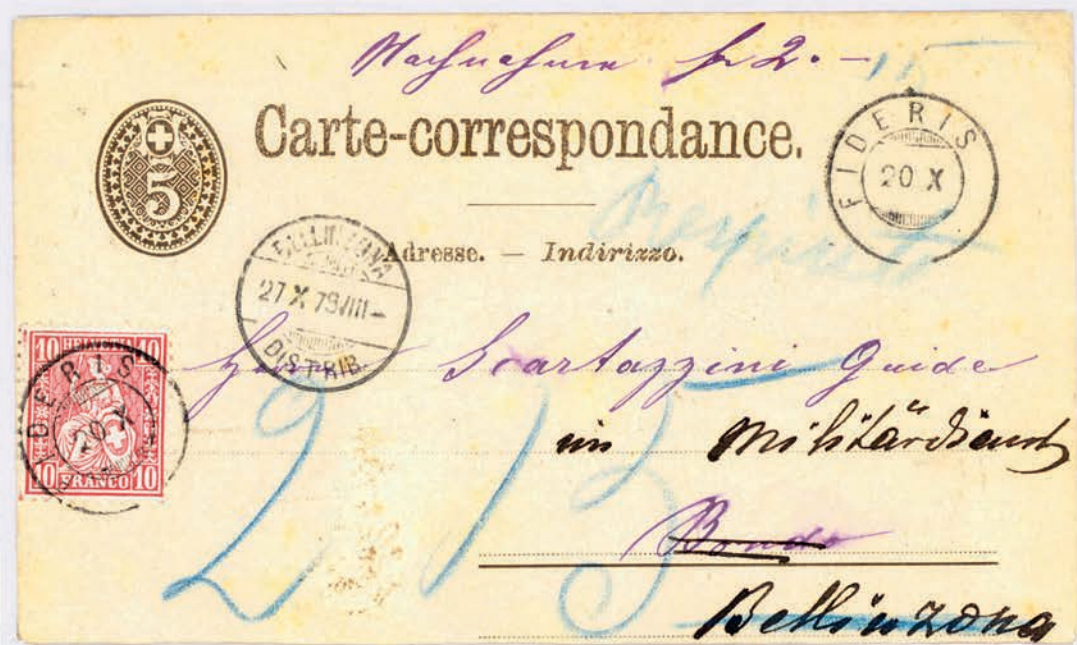 Nachnahme fr 2.– 15
Carte-correspondance.
5
FIDERIS
20 X
Adresse. — Indirizzo.
BELLINZONA
27 X 79 VIII –
DISTRIB.
Respinto
10 HELVETIA 10
10 FRANCO 10
FIDERIS
20 X
Herrn Scartazzini Guide
im Militärdienst
Bondo
Bellinzona
215